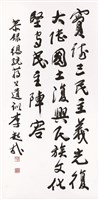 實踐三民主義光復
大陸國土復興民族文化
堅守民主陣容
恭錄總統蔣公遺訓 李超哉